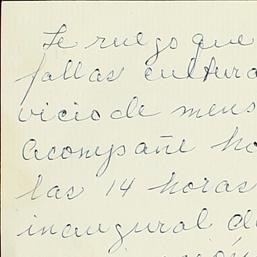 Te ruego que
fallas cultura
vicio de mens
acompañe ho
las 14 horas
inaugural d